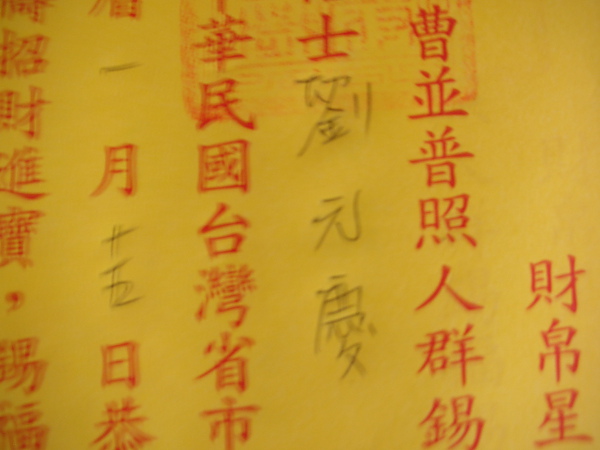 財帛星
曹並普照人群錫
士劉元慶
華民國台灣省市
一月廿五日恭
招財進寶，錫福